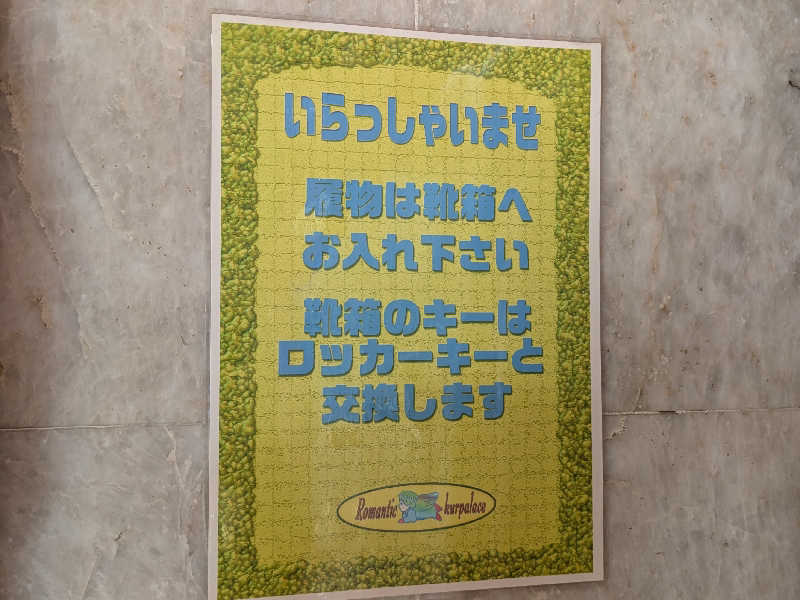 いらっしゃいませ
履物は靴箱へ
お入れ下さい
靴箱のキーは
ロッカーキーと
交換します
Romantic kurpalace